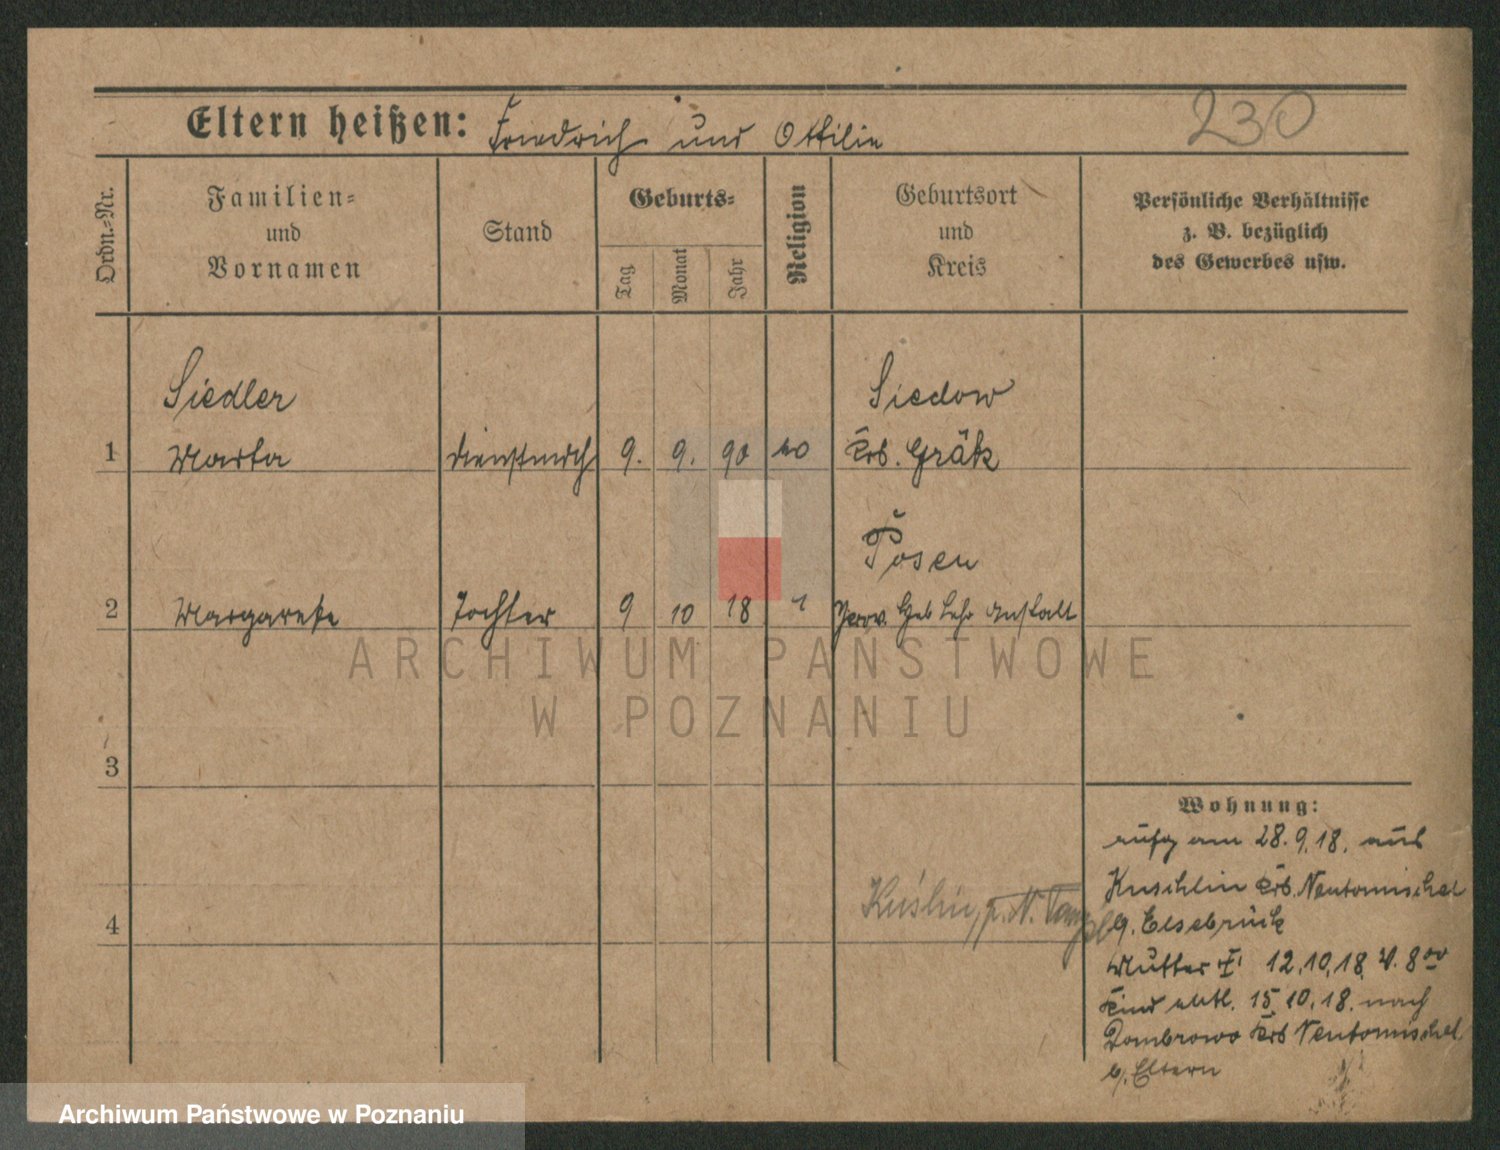 Eltern heißen: Friedrich und Ottilie
230
Ordn.-Nr.
Familien-
und
Vornamen
Stand
Geburts-
Tag
Monat
Jahr
Religion
Geburtsort
und
Kreis
Persönliche Verhältnisse
z. B. bezüglich
des Gewerbes usw.
Siedler
Siedow
1 Marta Dienstmdch 9. 9. 90 Krs. Grätz
Posen
2 Margarete Tochter 9 10 18 Prov. Heb Lehr Anstalt
3
4
Wohnung:
am 28.9.18. aus
Kuschlin Krs. Neutomischel
Mutter 12.10.18. V. 8 00
Kind entl. 15.10.18. nach
Dombrowo Krs Neutomischel
b. Eltern
ARCHIWUM PAŃSTWOWE
W POZNANIU
Archiwum Państwowe w Poznaniu